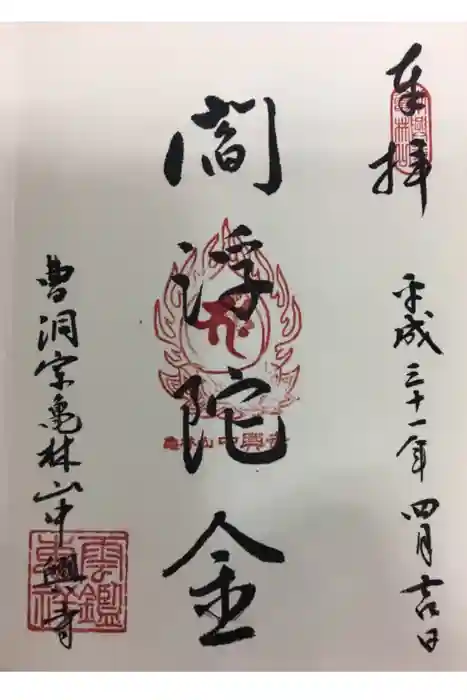 奉拝
平成三十一年四月吉日
閻浮陀金
亀林山中興寺
曹洞宗亀林山中興寺